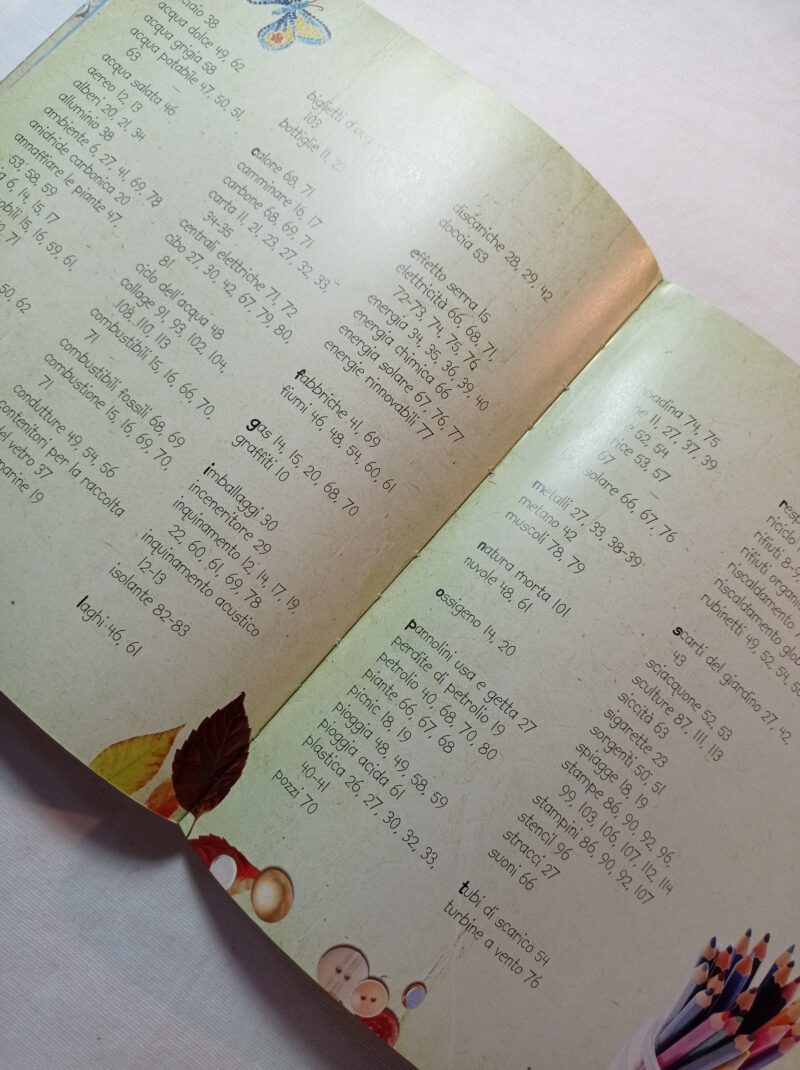 38
acqua dolce 49, 62
acqua grigia 58
acqua potabile 47, 50, 51,
63
acqua salata 46
aereo 12, 13
alberi 20, 21, 34
alluminio 38
ambiente 6, 27, 41, 69, 78
anidride carbonica 20
annaffiare le piante 47,
53, 58, 59
6, 14, 15, 17
15, 16, 59, 61,
71
50, 62
biglietti
103
bottiglie 11,
calore 68, 71
camminare 16, 17
carbone 68, 69, 71
carta 11, 21, 23, 27, 32, 33,
34-35
centrali elettriche 71, 72
cibo 27, 30, 42, 67, 79, 80,
81
ciclo dell'acqua 48
collage 91, 93, 102, 104,
108, 110, 113
combustibili 15, 16, 66, 70,
71
combustibili fossili 68, 69
combustione 15, 16, 69, 70,
71
condutture 49, 54, 56
contenitori per la raccolta
del vetro 37
marine 19
discariche 28, 29, 42
doccia 53
effetto serra 15
elettricità 66, 68, 71,
72-73, 74, 75, 76
energia 34, 35, 36, 39, 40
energia chimica 66
energia solare 67, 76, 77
energie rinnovabili 77
fabbriche 41, 69
fiumi 46, 48, 54, 60, 61
gas 14, 15, 20, 68, 70
graffiti 10
imballaggi 30
inceneritore 29
inquinamento 12, 14, 17, 19,
22, 60, 61, 69, 78
inquinamento acustico
12-13
isolante 82-83
laghi 46, 61
74, 75
11, 27, 37, 39
52, 54
53, 57
67
solare 66, 67, 76
metalli 27, 33, 38-39
metano 42
muscoli 78, 79
natura morta 101
nuvole 48, 61
ossigeno 14, 20
pannolini usa e getta 27
perdite di petrolio 19
petrolio 40, 68, 70, 80
piante 66, 67, 68
picnic 18, 19
pioggia 48, 49, 58, 59
pioggia acida 61
plastica 26, 27, 30, 32, 33,
40-41
pozzi 70
riciclo
rifiuti 8-9,
rifiuti
riscaldamento
riscaldamento
rubinetti 49, 52, 54,
scarti del giardino 27, 42,
43
sciacquone 52, 53
sculture 87, 111, 113
siccità 63
sigarette 23
sorgenti 50, 51
spiagge 18, 19
stampe 86, 90, 92, 96,
99, 103, 106, 107, 112, 114
stampini 86, 90, 92, 107
stencil 96
stracci 27
suoni 66
tubi di scarico 54
turbine a vento 76